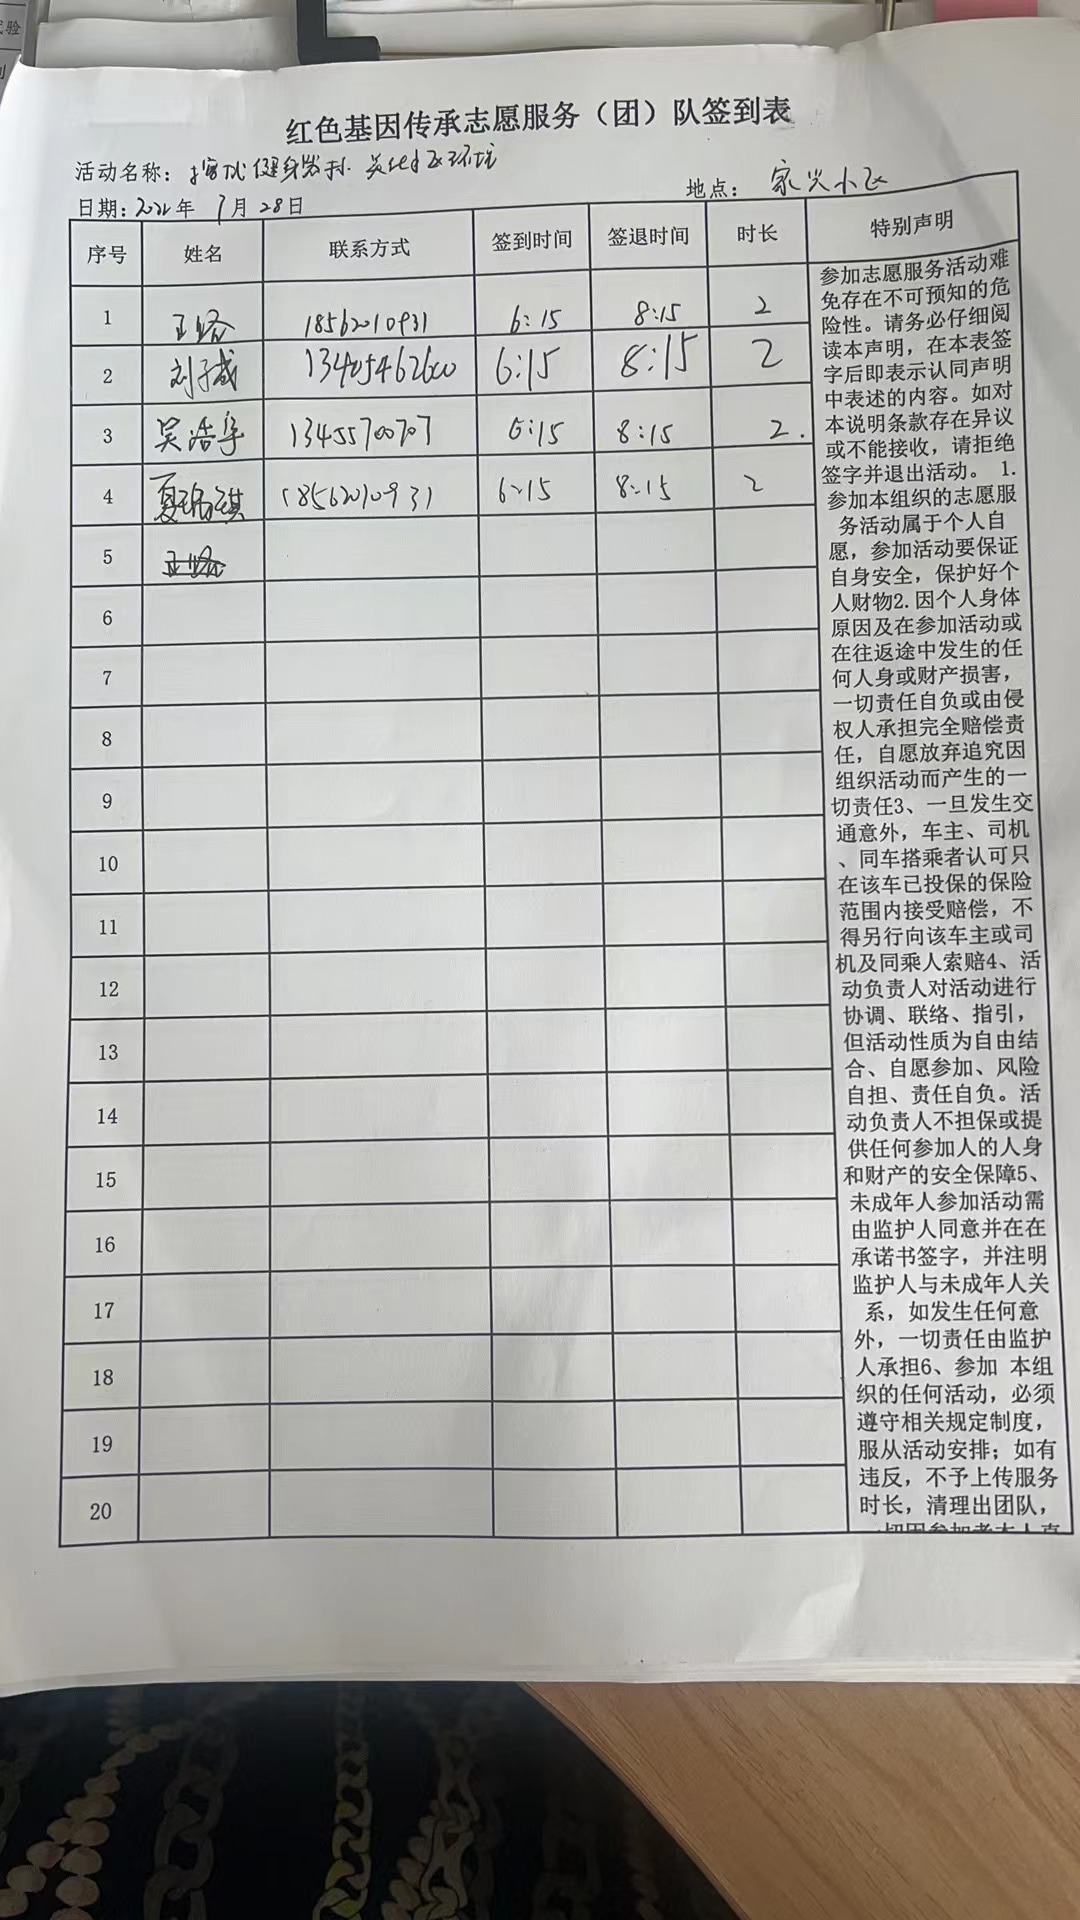 红色基因传承志愿服务（团）队签到表
活动名称：擦拭健身器材 美化小区环境
日期：2022年 7月 28日
地点：家兴小区
序号 姓名 联系方式 签到时间 签退时间 时长 特别声明
1 18562010931 6:15 8:15 2
2 刘子威 13405462600 6:15 8:15 2
3 吴浩宇 13455700707 6:15 8:15 2.
4 18562010931 6:15 8:15 2
5
6
7
8
9
10
11
12
13
14
15
16
17
18
19
20
参加志愿服务活动难
免存在不可预知的危
险性。请务必仔细阅
读本声明，在本表签
字后即表示认同声明
中表述的内容。如对
本说明条款存在异议
或不能接收，请拒绝
签字并退出活动。 1.
参加本组织的志愿服
务活动属于个人自
愿，参加活动要保证
自身安全，保护好个
人财物2.因个人身体
原因及在参加活动或
在往返途中发生的任
何人身或财产损害，
一切责任自负或由侵
权人承担完全赔偿责
任，自愿放弃追究因
组织活动而产生的一
切责任3、一旦发生交
通意外，车主、司机
、同车搭乘者认可只
在该车已投保的保险
范围内接受赔偿，不
得另行向该车主或司
机及同乘人索赔4、活
动负责人对活动进行
协调、联络、指引，
但活动性质为自由结
合、自愿参加、风险
自担、责任自负。活
动负责人不担保或提
供任何参加人的人身
和财产的安全保障5、
未成年人参加活动需
由监护人同意并在在
承诺书签字，并注明
监护人与未成年人关
系，如发生任何意
外，一切责任由监护
人承担6、参加 本组
织的任何活动，必须
遵守相关规定制度，
服从活动安排；如有
违反，不予上传服务
时长，清理出团队，